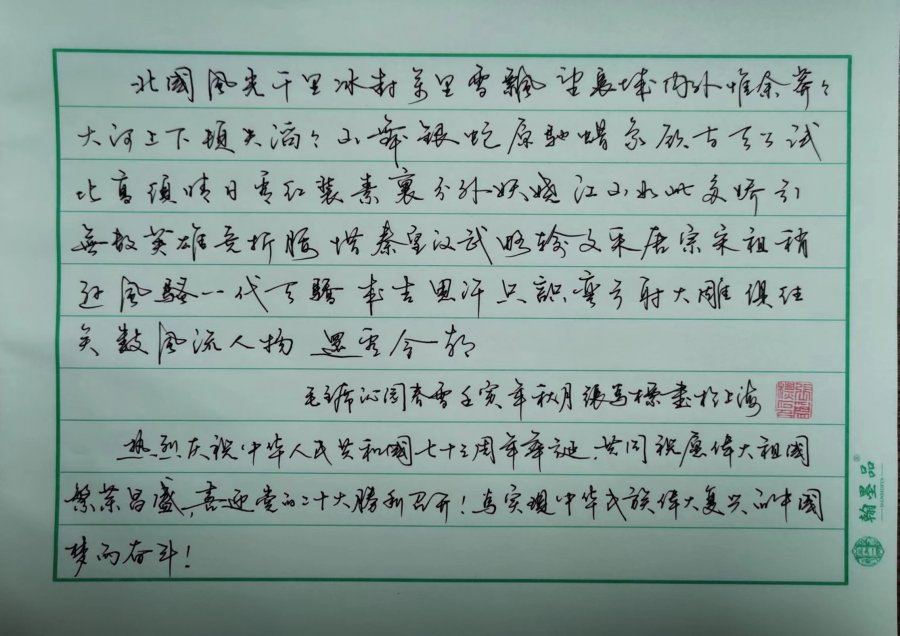 北國風光千里冰封萬里雪飄望長城内外惟余莽々
大河上下頓失滔々山舞銀蛇原馳蠟象欲与天公試
比高須晴日看红裝素裹分外妖娆江山如此多娇引
無数英雄竞折腰惜秦皇汉武略输文采唐宗宋祖稍
逊風騷一代天驕成吉思汗只識彎弓射大雕俱往
矣数風流人物還看今朝
毛主席沁园春雪壬寅年秋月張書於上海
热烈庆祝中华人民共和國七十三周年華诞共同祝愿偉大祖國
繁荣昌盛,喜迎党的二十大勝利召开!為实現中华民族偉大复兴的中國
梦而奋斗!
翰墨品®